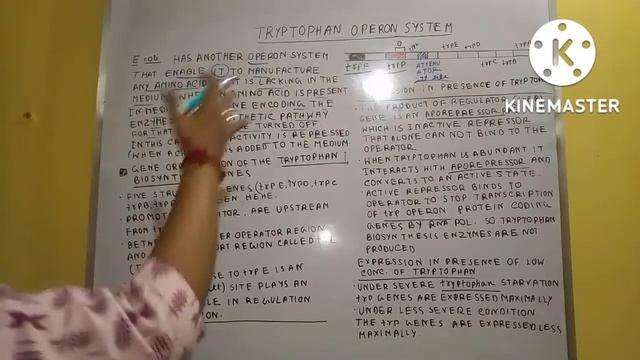 TRYPTOPHAN OPERON SYSTEM
E coli HAS ANOTHER OPERON SYSTEM
THAT ENABLE IT TO MANUFACTURE
ANY AMINO ACID IS LACKING IN THE
MEDIUM WHEN AN AMINO ACID IS PRESENT
IN MEDI ENE ENCODING THE
ENZYME THETIC PATHWAY
FOR THAT RE TURNED OFF
IN THIS CA ACTIVITY IS REPRESSED
WHEN ACID IS ADDED TO THE MEDIUM
GENE ORGAN ON OF THE TRYPTOPHAN
BIOSYN ENES
FIVE STRUC ENES (trpE, trpD, trpC
trpB,
PROMOT ATOR, ARE UPSTREAM
FROM ER OPERATOR REGION
BETW ORT REGION CALLED
AND
E TO trpE IS AN
SITE PLAYS AN
LE IN REGULATION
ION.
O
trpR trpP
ATTENU
ATOR
trpE trpD
trpC trpB
KINEMASTER
ESSION IN PRESENCE OF TRYPTOP
THE PRODUCT OF REGULATOR
GENE IS AN APOREPRESSOR
WHICH IS INACTIVE REPRESSOR
THAT ALONE CAN NOT BIND TO THE
OPERATOR
WHEN TRYPTOPHAN IS ABUNDANT IT
INTERACTS WITH APOREPRESSOR AND
CONVERTS TO AN ACTIVE STATE.
ACTIVE REPRESSOR BINDS TO
OPERATOR TO STOP TRANSCRIPTION
OF trp OPERON PROTEIN CODING
GENES BY RNA POL. SO TRYPTOPHAN
BIOSYNTHESIS ENZYMES ARE NOT
PRODUCED
EXPRESSION IN PRESENCE OF LOW
CONC. OF TRYPTOPHAN
UNDER SEVERE tryptophan STARVATION
trp GENES ARE EXPRESSED MAXIMALLY
UNDER LESS SEVERE CONDITION
THE trp GENES ARE EXPRESSED LESS
MAXIMALLY.